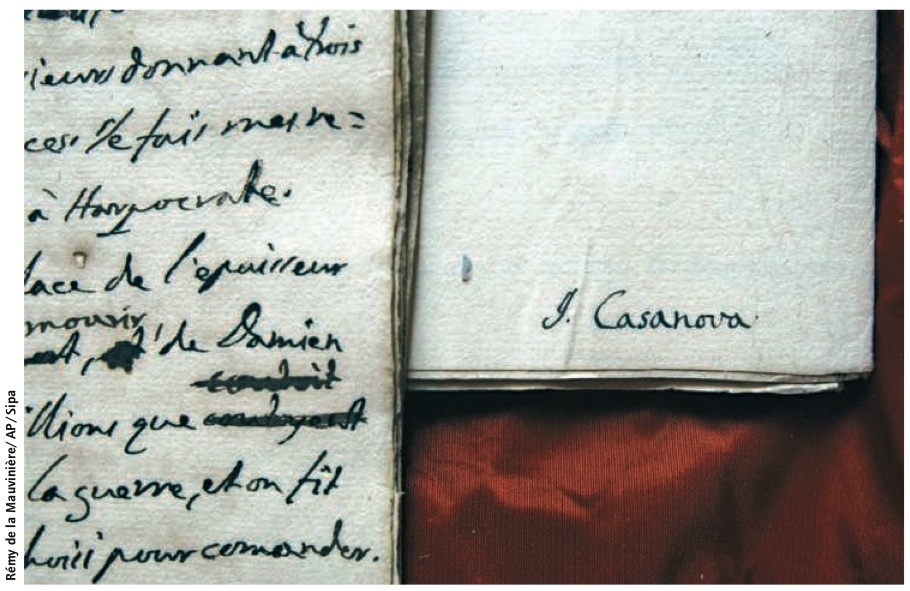 ieurs donnant à trois
ces. Je fais mes re=
à Harpocrate.
lace de l'epaisseur
mourir
de Damien
conduit
llions que
la guerre, et on fit
hoisi pour comander.
J. Casanova
Rémy de la Mauvinière/ AP/ Sipa